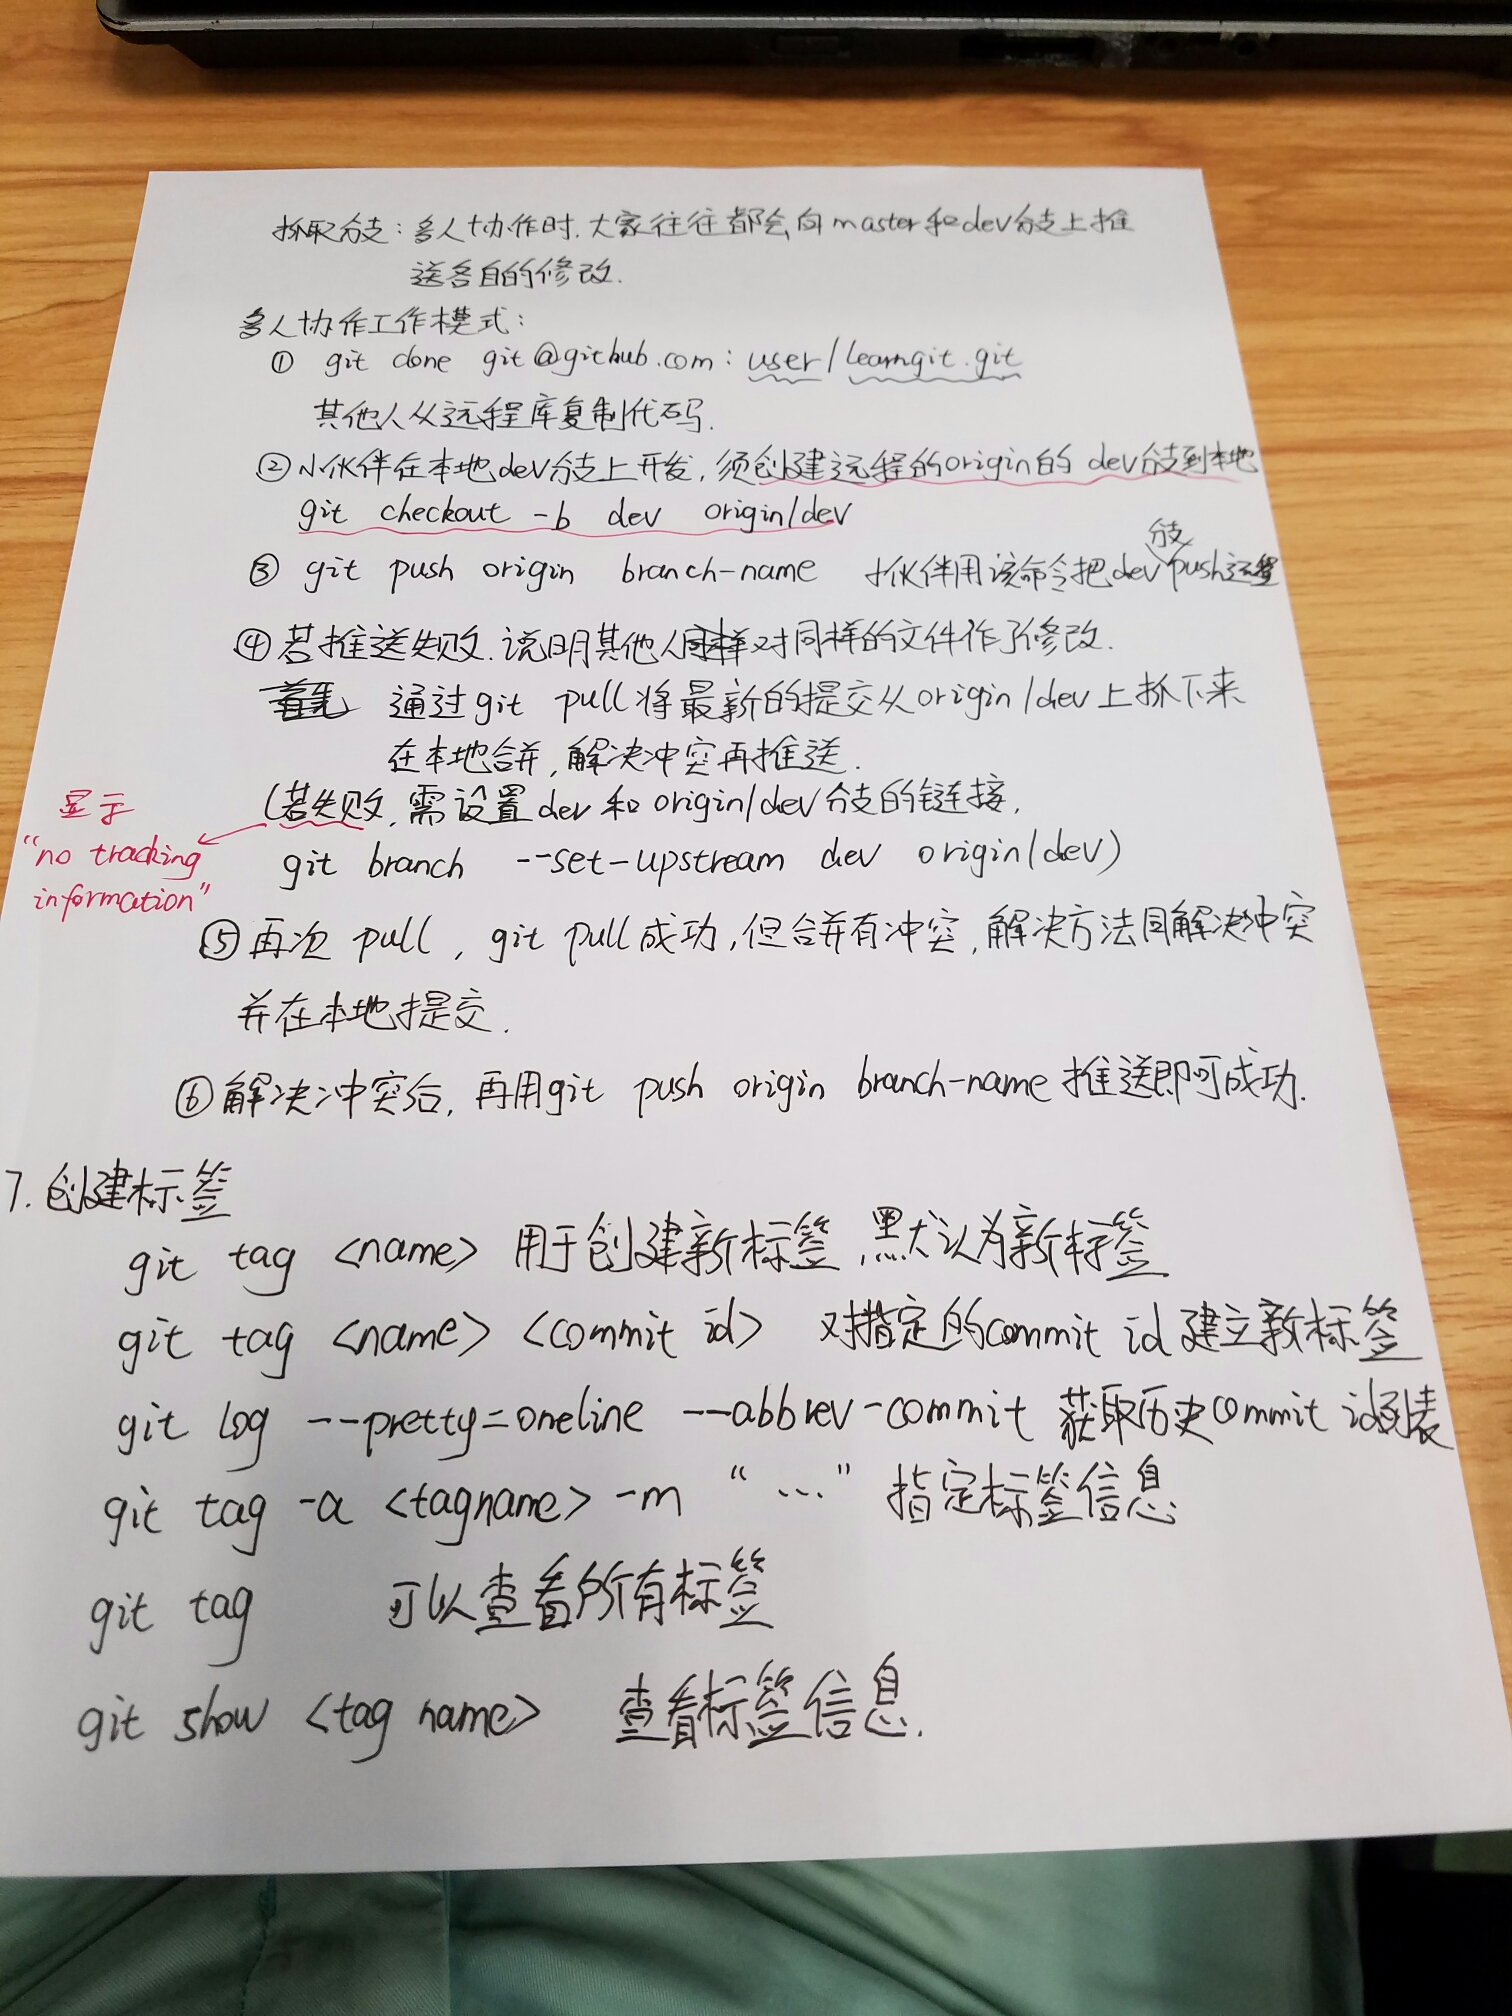 抓取分支：多人协作时.大家往往都会向master和dev分支上推
送各自的修改.
多人协作工作模式：
① git clone git@github.com：user/learngit.git
其他人从远程库复制代码.
②小伙伴在本地dev分支上开发，须创建远程的origin的dev分支到本地
git checkout -b dev origin/dev
③ git push origin branch-name 小伙伴用该命令把dev分支push远程
④若推送失败.说明其他人对同样的文件作了修改.
通过git pull将最新的提交从origin/dev上抓下来
在本地合并，解决冲突再推送.
(若失败，需设置dev和origin/dev分支的链接，
显示
"no tracking
information"
git branch --set-upstream dev origin/dev)
⑤再次pull，git pull成功，但合并有冲突，解决方法同解决冲突
并在本地提交.
⑥解决冲突后，再用git push origin branch-name推送即可成功.
7.创建标签
git tag <name> 用于创建新标签，默认为新标签
git tag <name> <commit id> 对指定的commit id建立新标签
git log --pretty=oneline --abbrev-commit 获取历史commit id列表
git tag -a <tagname> -m "..." 指定标签信息
git tag 可以查看所有标签
git show <tag name> 查看标签信息.